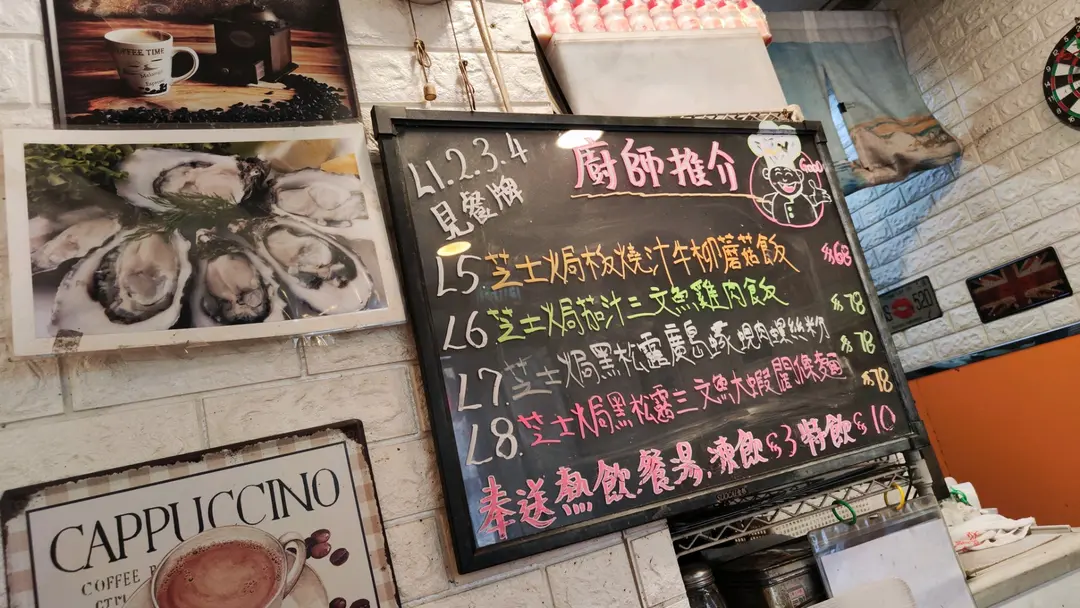 COFFEE TIME
L1.2.3.4
見餐牌
廚師推介
Good
L5 芝士焗板燒汁牛柳蘑菇飯 $68
L6 芝士焗茄汁三文魚雞肉飯 $78
L7 芝士焗黑松露廣島蠔蜆肉螺絲粉 $78
L8 芝士焗黑松露三文魚大蝦闊條麵 $78
奉送熱飲.餐湯.凍飲$3特飲$10
520
CAPPUCCINO
COFFEE